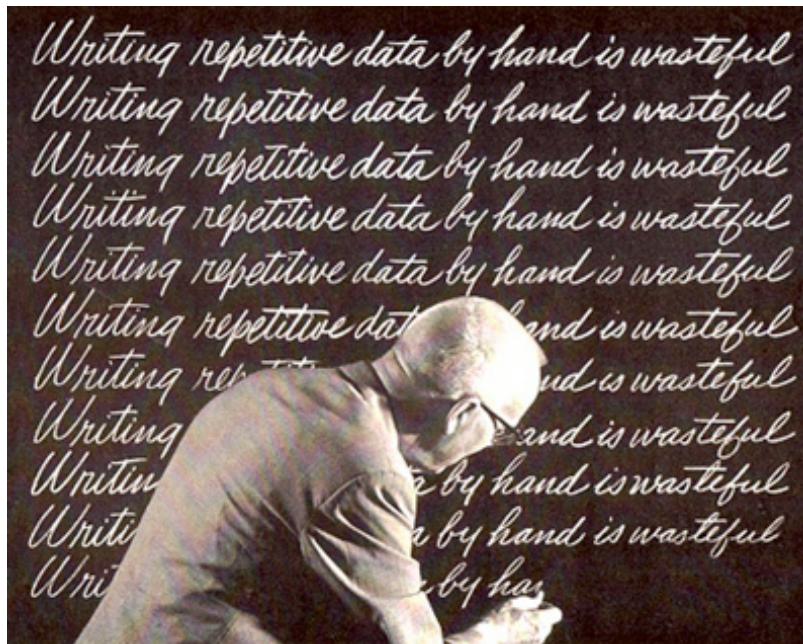 Writing repetitive data by hand is wasteful
Writing repetitive data by hand is wasteful
Writing repetitive data by hand is wasteful
Writing repetitive data by hand is wasteful
Writing repetitive data by hand is wasteful
Writing repetitive data hand is wasteful
Writing is wasteful
Writing is wasteful
by hand is wasteful
by hand is wasteful
by